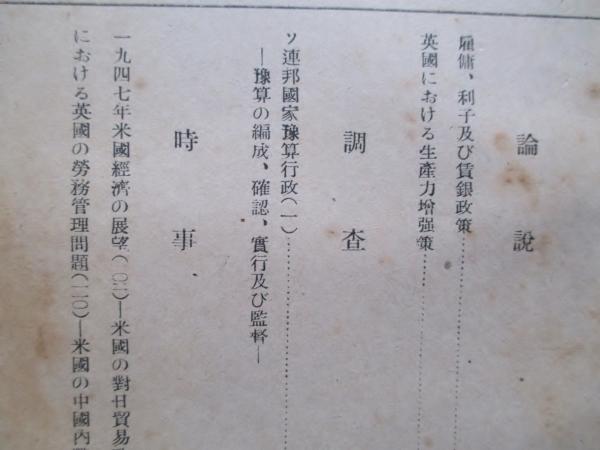 論說
雇傭、利子及び賃銀政策……………………
英國における生產力增强策……
調査
ソ連邦國家豫算行政(一)……………………
―豫算の編成、確認、實行及び監督―
時事
一九四七年米國經濟の展望(一〇二)―米國の對日貿易
における英國の勞務管理問題(一一〇)―米國の中國內